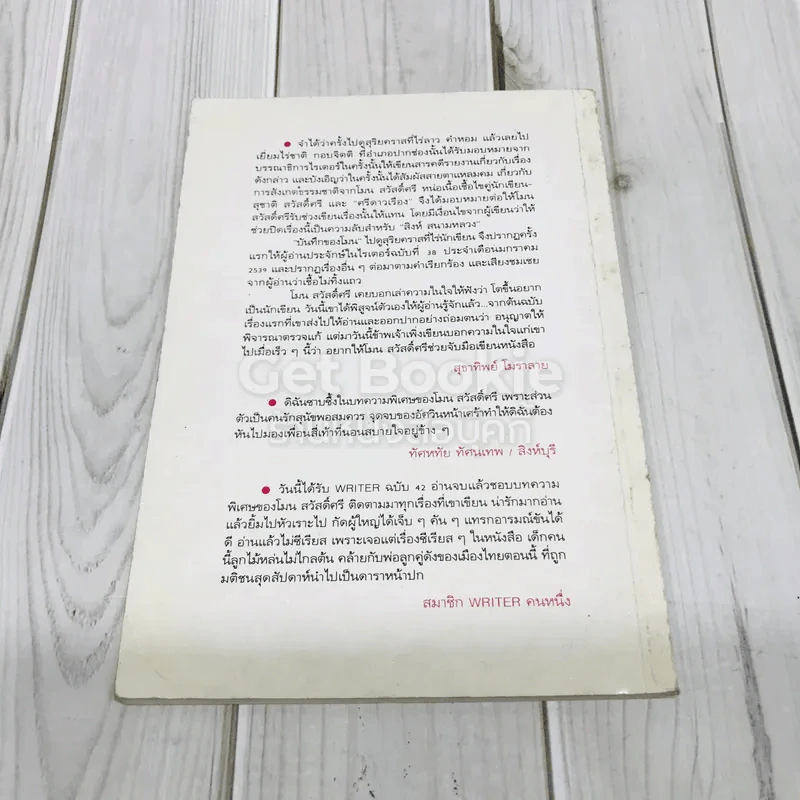 ● จำได้ว่าครั้งไปดูสุริยคราสที่ไร่ลาว คำหอม แล้วเลยไป
เยี่ยมไร่ชาติ กอบจิตติ ที่อำเภอปากช่องนั้นได้รับมอบหมายจาก
บรรณาธิการไรเตอร์ในครั้งนั้นให้เขียนสารคดีรายงานเกี่ยวกับเรื่อง
ดังกล่าว และบังเอิญว่าในครั้งนั้นได้สัมผัสสายตาแหลมคม เกี่ยวกับ
การสังเกตธรรมชาติจากโมน สวัสดิ์ศรี หน่อเนื้อเชื้อไขคู่นักเขียน-
สุชาติ สวัสดิ์ศรี และ "ศรีดาวเรือง" จึงได้มอบหมายต่อให้โมน
สวัสดิ์ศรีรับช่วงเขียนเรื่องนั้นให้แทน โดยมีเงื่อนไขจากผู้เขียนว่าให้
ช่วยปิดเรื่องนี้เป็นความลับสำหรับ "สิงห์ สนามหลวง"
"บันทึกของโมน" ไปดูสุริยคราสที่ไร่นักเขียน จึงปรากฏครั้ง
แรกให้ผู้อ่านประจักษ์ในไรเตอร์ฉบับที่ 38 ประจำเดือนมกราคม
2539 และปรากฏเรื่องอื่น ๆ ต่อมาตามคำเรียกร้อง และเสียงชมเชย
จากผู้อ่านว่าเชื้อไม่ทิ้งแถว
โมน สวัสดิ์ศรี เคยบอกเล่าความในใจให้ฟังว่า โตขึ้นอยาก
เป็นนักเขียน วันนี้เขาได้พิสูจน์ตัวเองให้ผู้อ่านรู้จักแล้ว...จากต้นฉบับ
เรื่องแรกที่เขาส่งไปให้อ่านและออกปากอย่างถ่อมตนว่า อนุญาตให้
พิจารณาตรวจแก้ แต่มาวันนี้ข้าพเจ้าเพิ่งเขียนบอกความในใจแก่เขา
ไปเมื่อเร็ว ๆ นี้ว่า อยากให้โมน สวัสดิ์ศรีช่วยจับมือเขียนหนังสือ
สุธาทิพย์ โมราลาย
Get Bookie
● ดิฉันซาบซึ้งในบทความพิเศษของโมน สวัสดิ์ศรี เพราะส่วน
ตัวเป็นคนรักสุนัขพอสมควร จุดจบของอัศวินหน้าเศร้าทำให้ดิฉันต้อง
หันไปมองเพื่อนสี่เท้าที่นอนสบายใจอยู่ข้าง ๆ
ทัศหทัย ทัศนเทพ / สิงห์บุรี
● วันนี้ได้รับ WRITER ฉบับ 42 อ่านจบแล้วชอบบทความ
พิเศษของโมน สวัสดิ์ศรี ติดตามมาทุกเรื่องที่เขาเขียน น่ารักมากอ่าน
แล้วยิ้มไปหัวเราะไป กัดผู้ใหญ่ได้เจ็บ ๆ คัน ๆ แทรกอารมณ์ขันได้
ดี อ่านแล้วไม่ซีเรียส เพราะเจอแต่เรื่องซีเรียส ๆ ในหนังสือ เด็กคน
นี้ลูกไม้หล่นไม่ไกลต้น คล้ายกับพ่อลูกคู่ดังของเมืองไทยตอนนี้ ที่ถูก
มติชนสุดสัปดาห์นำไปเป็นดาราหน้าปก
สมาชิก WRITER คนหนึ่ง